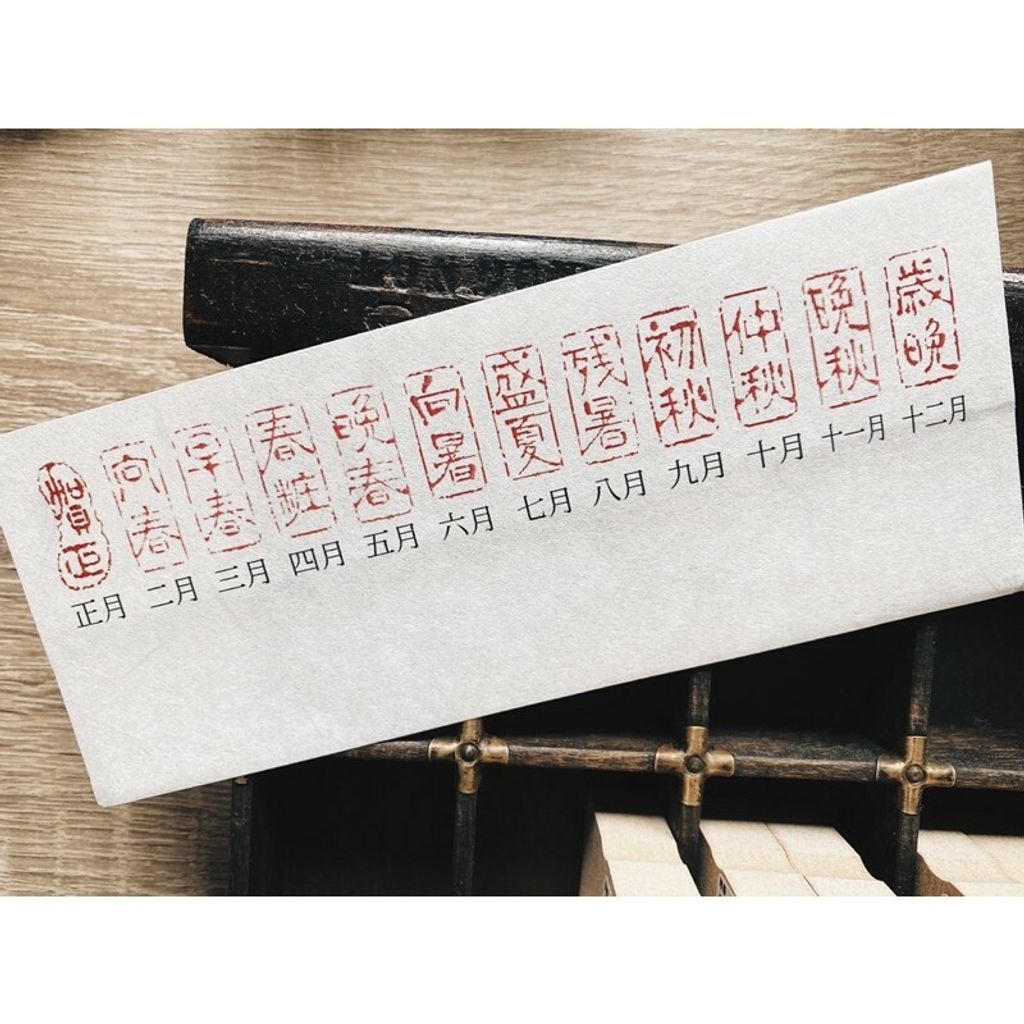 賀正
向春
早春
春粧
晩春
向暑
盛夏
残暑
初秋
仲秋
晩秋
歳晩
正月 二月 三月 四月 五月 六月 七月 八月 九月 十月 十一月 十二月